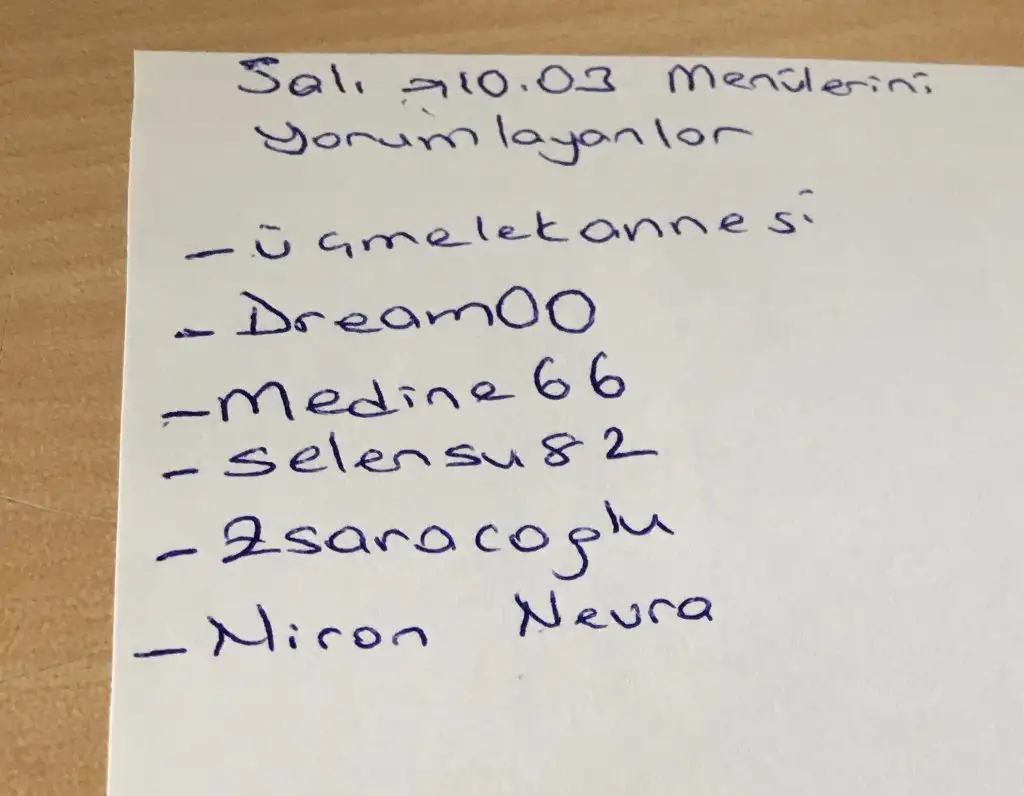 Salı → 10.03 Menülerini
yorumlayanlar
- üçmelekannesi
- Dream00
- Medine66
- Selensu82
- Zsaracoglu
- Niron Nevra